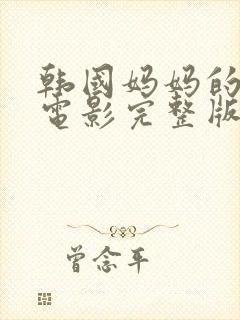 韩国妈妈的
电影完整版
曾念平